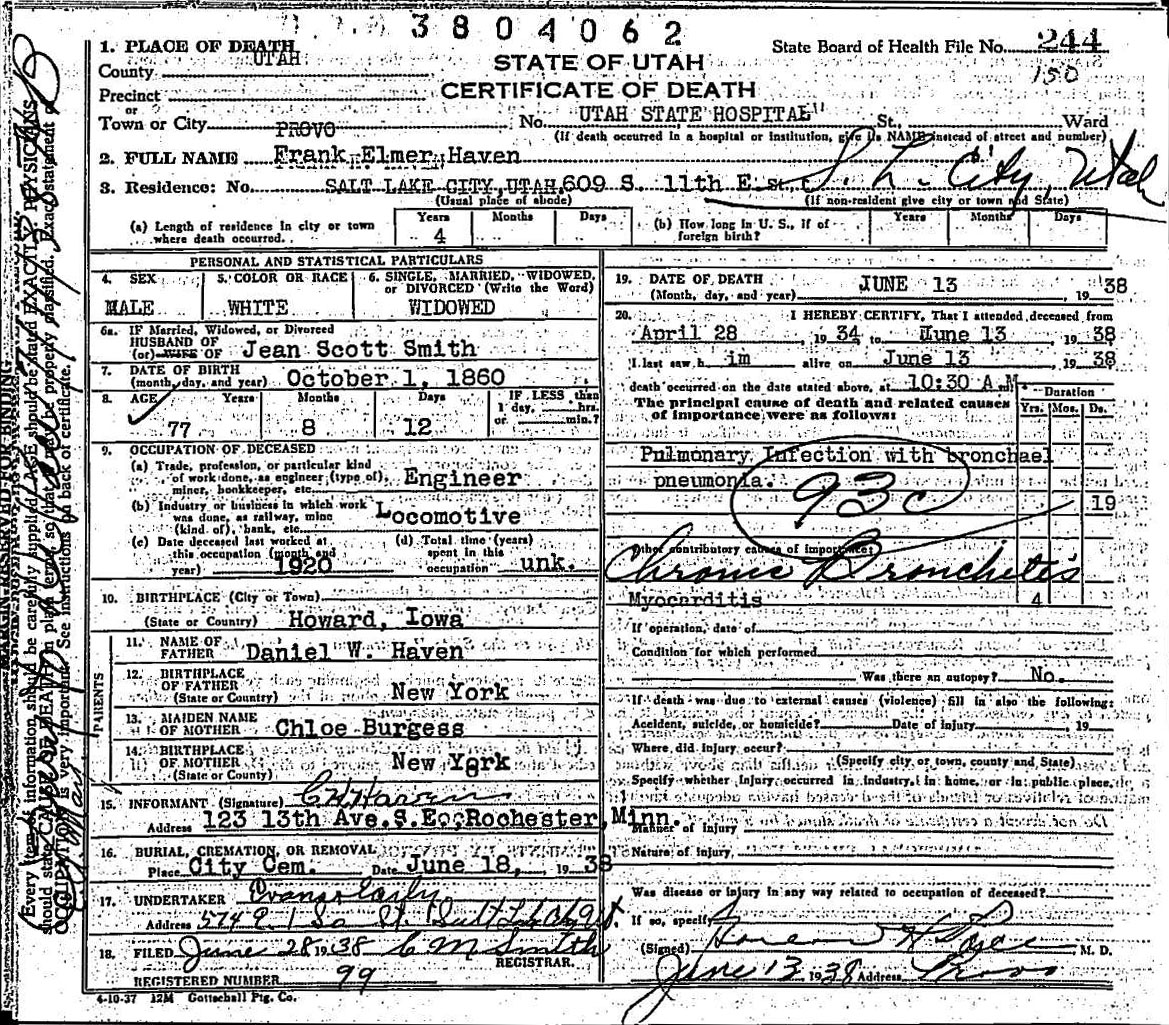 3804062
1. PLACE OF DEATH
State Board of Health File No. 244
150
County UTAH
STATE OF UTAH
CERTIFICATE OF DEATH
Precinct
or
Town or City PROVO No. UTAH STATE HOSPITAL St., Ward
(If death occurred in a hospital or institution, give its NAME instead of street and number)
2. FULL NAME Frank Elmer Haven
3. Residence: No. SALT LAKE CITY, UTAH, 609 S. 11th E. St., S. L. City, Utah
(Usual place of abode) (If non-resident give city or town and State)
(a) Length of residence in city or town where death occurred. Years 4 Months Days
(b) How long in U. S., if of foreign birth? Years Months Days
PERSONAL AND STATISTICAL PARTICULARS
4. SEX MALE
5. COLOR OR RACE WHITE
6. SINGLE, MARRIED, WIDOWED, or DIVORCED (Write the Word) WIDOWED
6a. IF Married, Widowed, or Divorced
HUSBAND OF
(or) WIFE OF Jean Scott Smith
7. DATE OF BIRTH
(month, day, and year) October 1, 1860
8. AGE Years Months Days IF LESS than
1 day, hrs.
or min.?
77 8 12
9. OCCUPATION OF DECEASED
(a) Trade, profession, or particular kind
of work done, as engineer (type of),
miner, bookkeeper, etc. Engineer
(b) Industry or business in which work
was done, as railway, mine
(kind of), bank, etc. Locomotive
(c) Date deceased last worked at
this occupation (month and
year) 1920
(d) Total time (years)
spent in this
occupation unk.
10. BIRTHPLACE (City or Town)
(State or Country) Howard, Iowa
PARENTS
11. NAME OF
FATHER Daniel W. Haven
12. BIRTHPLACE
OF FATHER
(State or Country) New York
13. MAIDEN NAME
OF MOTHER Chloe Burgess
14. BIRTHPLACE
OF MOTHER
(State or County) New York
15. INFORMANT (Signature) C H Haven
Address 123 13th Ave. S.E., Rochester, Minn.
16. BURIAL, CREMATION, OR REMOVAL
Place City Cem. Date June 18, 1938
17. UNDERTAKER Evans & Early
Address 574 E. 1 So St
18. FILED June 28 1938 C M Smith
REGISTRAR.
REGISTERED NUMBER 99
4-10-37 12M Gottschall Ptg. Co.
19. DATE OF DEATH
(Month, day, and year) JUNE 13 1938
20. I HEREBY CERTIFY, That I attended deceased from
April 28 1934 to June 13 1938
I last saw him alive on June 13 1938
death occurred on the date stated above, at 10:30 A M
The principal cause of death and related causes
of importance were as follows:
Duration
Yrs. Mos. Ds.
Pulmonary Infection with bronchael
pneumonia. 19
93c
Other contributory causes of importance:
Chronic Bronchetis
Myocarditis 4
If operation, date of
Condition for which performed
Was there an autopsy? No.
If death was due to external causes (violence) fill in also the following:
Accident, suicide, or homicide? Date of injury 19
Where did injury occur?
(Specify city or town, county and State)
Specify whether injury occurred in industry, in home, or in public place,
Manner of Injury
Nature of injury
Was disease or injury in any way related to occupation of deceased?
If so, specify
(Signed) M. D.
June 13 1938 Address Provo
MARGIN RESERVED FOR BINDING
Every item of information should be carefully supplied. AGE should be stated EXACTLY. PHYSICIANS
should state CAUSE OF DEATH in plain terms, so that it may be properly classified. Exact statement of
OCCUPATION is very important. See instructions on back of certificate.